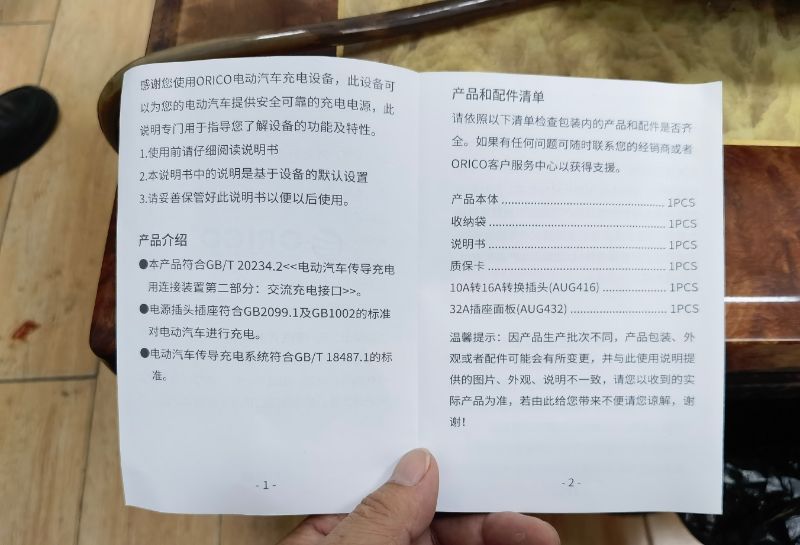 感谢您使用ORICO电动汽车充电设备，此设备可
以为您的电动汽车提供安全可靠的充电电源，此
说明专门用于指导您了解设备的功能及特性。
1.使用前请仔细阅读说明书
2.本说明书中的说明是基于设备的默认设置
3.请妥善保管好此说明书以便以后使用。
产品介绍
●本产品符合GB/T 20234.2<<电动汽车传导充电
用连接装置第二部分：交流充电接口>>。
●电源插头插座符合GB2099.1及GB1002的标准
对电动汽车进行充电。
●电动汽车传导充电系统符合GB/T 18487.1的标
准。
- 1 -
产品和配件清单
请依照以下清单检查包装内的产品和配件是否齐
全。如果有任何问题可随时联系您的经销商或者
ORICO客户服务中心以获得支援。
产品本体 .................................................. 1PCS
收纳袋 ...................................................... 1PCS
说明书 ...................................................... 1PCS
质保卡 ...................................................... 1PCS
10A转16A转换插头(AUG416) .................... 1PCS
32A插座面板(AUG432) ............................... 1PCS
温馨提示：因产品生产批次不同，产品包装、外
观或者配件可能会有所变更，并与此使用说明提
供的图片、外观、说明不一致，请您以收到的实
际产品为准，若由此给您带来不便请您谅解，谢
谢！
- 2 -